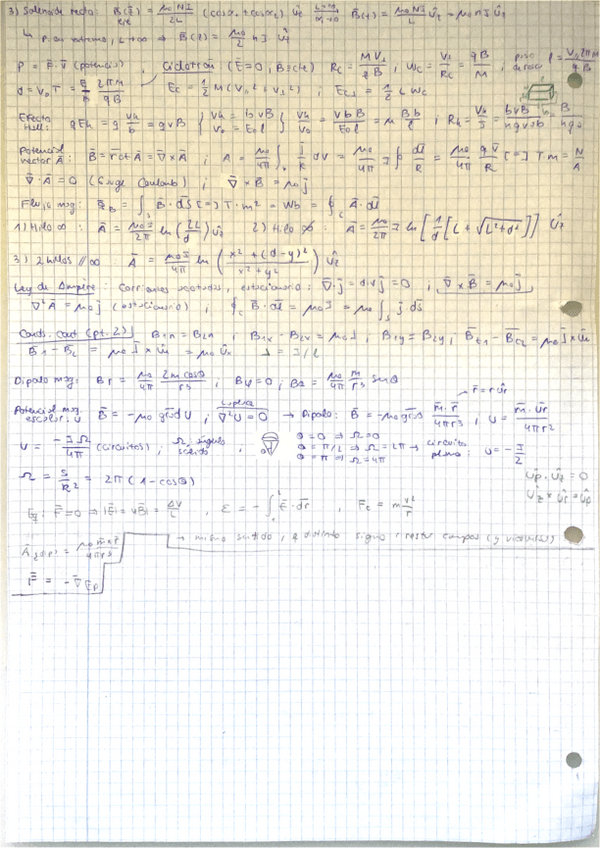 3) Solenoide recto: B(z) = μ0NI/2L (cosα1 + cosα2) ûz → L→∞ α→0 B(z) = μ0NI/L ûz = μ0nI ûz
↳ p. en extremo, L→∞ ⇒ B(z) = μ0/2 nI ûz
P = F̄·v̄ (potencia), Ciclotrón (Ē=0, B=cte) Rc = MV⊥/qB, ωc = V⊥/Rc = qB/M, paso l = V0 2πM/qB
d = v0 T = 2πM/qB Ec = 1/2 M(V0² + V⊥²); Ec⊥ = 1/2 L ωc
Efecto Hall: qEh = q Vh/b = qvB { Vh = bvB V0 = E0l } Vh/V0 = vbB/E0l = μ Bb/l; Rh = Vh/I = bvB/nqvsb = B/nqs
Potencial vector Ā: B̄ = rot Ā = ∇̄×Ā; A = μ0/4π ∫ j̄/R dv = μ0/4π I ∮ dl̄/R = μ0/4π qv̄/R [=] T·m = N/A
∇̄·Ā = 0 (Gauge Coulomb); ∇̄×B̄ = μ0 j̄
Flujo mag: ΦB = ∫s B̄·dS̄ [=] T·m² = Wb = ∮c Ā·dl̄
1) Hilo ∞: Ā = μ0I/2π ln(2L/d) ûz 2) Hilo ∞̸: Ā = μ0/2π I ln[1/d [L + √(L²+d²)]] ûz
3) 2 hilos // ∞: Ā = μ0I/4π ln((x² + (d-y)²)/(x² + y²)) ûz
Ley de Ampère: Corrientes estacionarias: ∇̄·j̄ = div j̄ = 0; ∇̄×B̄ = μ0j̄
∇²Ā = μ0j̄ (estacionario); ∮c B̄·dl̄ = μ0I = μ0∫s j̄ ds̄
Conds. Cont (pt. 2) B1n = B2n, B1x - B2x = μ0J; B1y = B2y; B̄t1 - B̄t2 = μ0 J̄×ûn
B̄1 - B̄2 = μ0 J̄×ûn = μ0 ûx J = I/l
Dipolo mag: Br = μ0/4π 2m cosθ/r³; Bφ = 0; Bθ = μ0/4π m/r³ senθ
r̄ = r ûr
Potencial mag. escalar: U B̄ = -μ0 grad U; Laplace ∇²U = 0 → Dipolo: B̄ = -μ0 grad m̄·r̄/4πr³, U = m̄·ûr/4πr²
U = -IΩ/4π (circuitos); Ω: ángulo sólido, θ=0 ⇒ Ω=0 θ=π/2 ⇒ Ω=2π θ=π ⇒ Ω=4π → circuito plano: U = -I/2
Ω = S/R² = 2π(1-cosθ)
ûρ·ûz = 0
ûz×ûr = ûφ
Eq: F̄=0 ⇒ |Ē| = vB = ΔV/L, ε = -∫ Ē·dr̄, Fc = m v²/r
Ā(dip) = μ0 m̄×r̄/4πr³ → mismo sentido, distinto signo: restar campos (y viceversa)
F̄ = -∇̄Ep